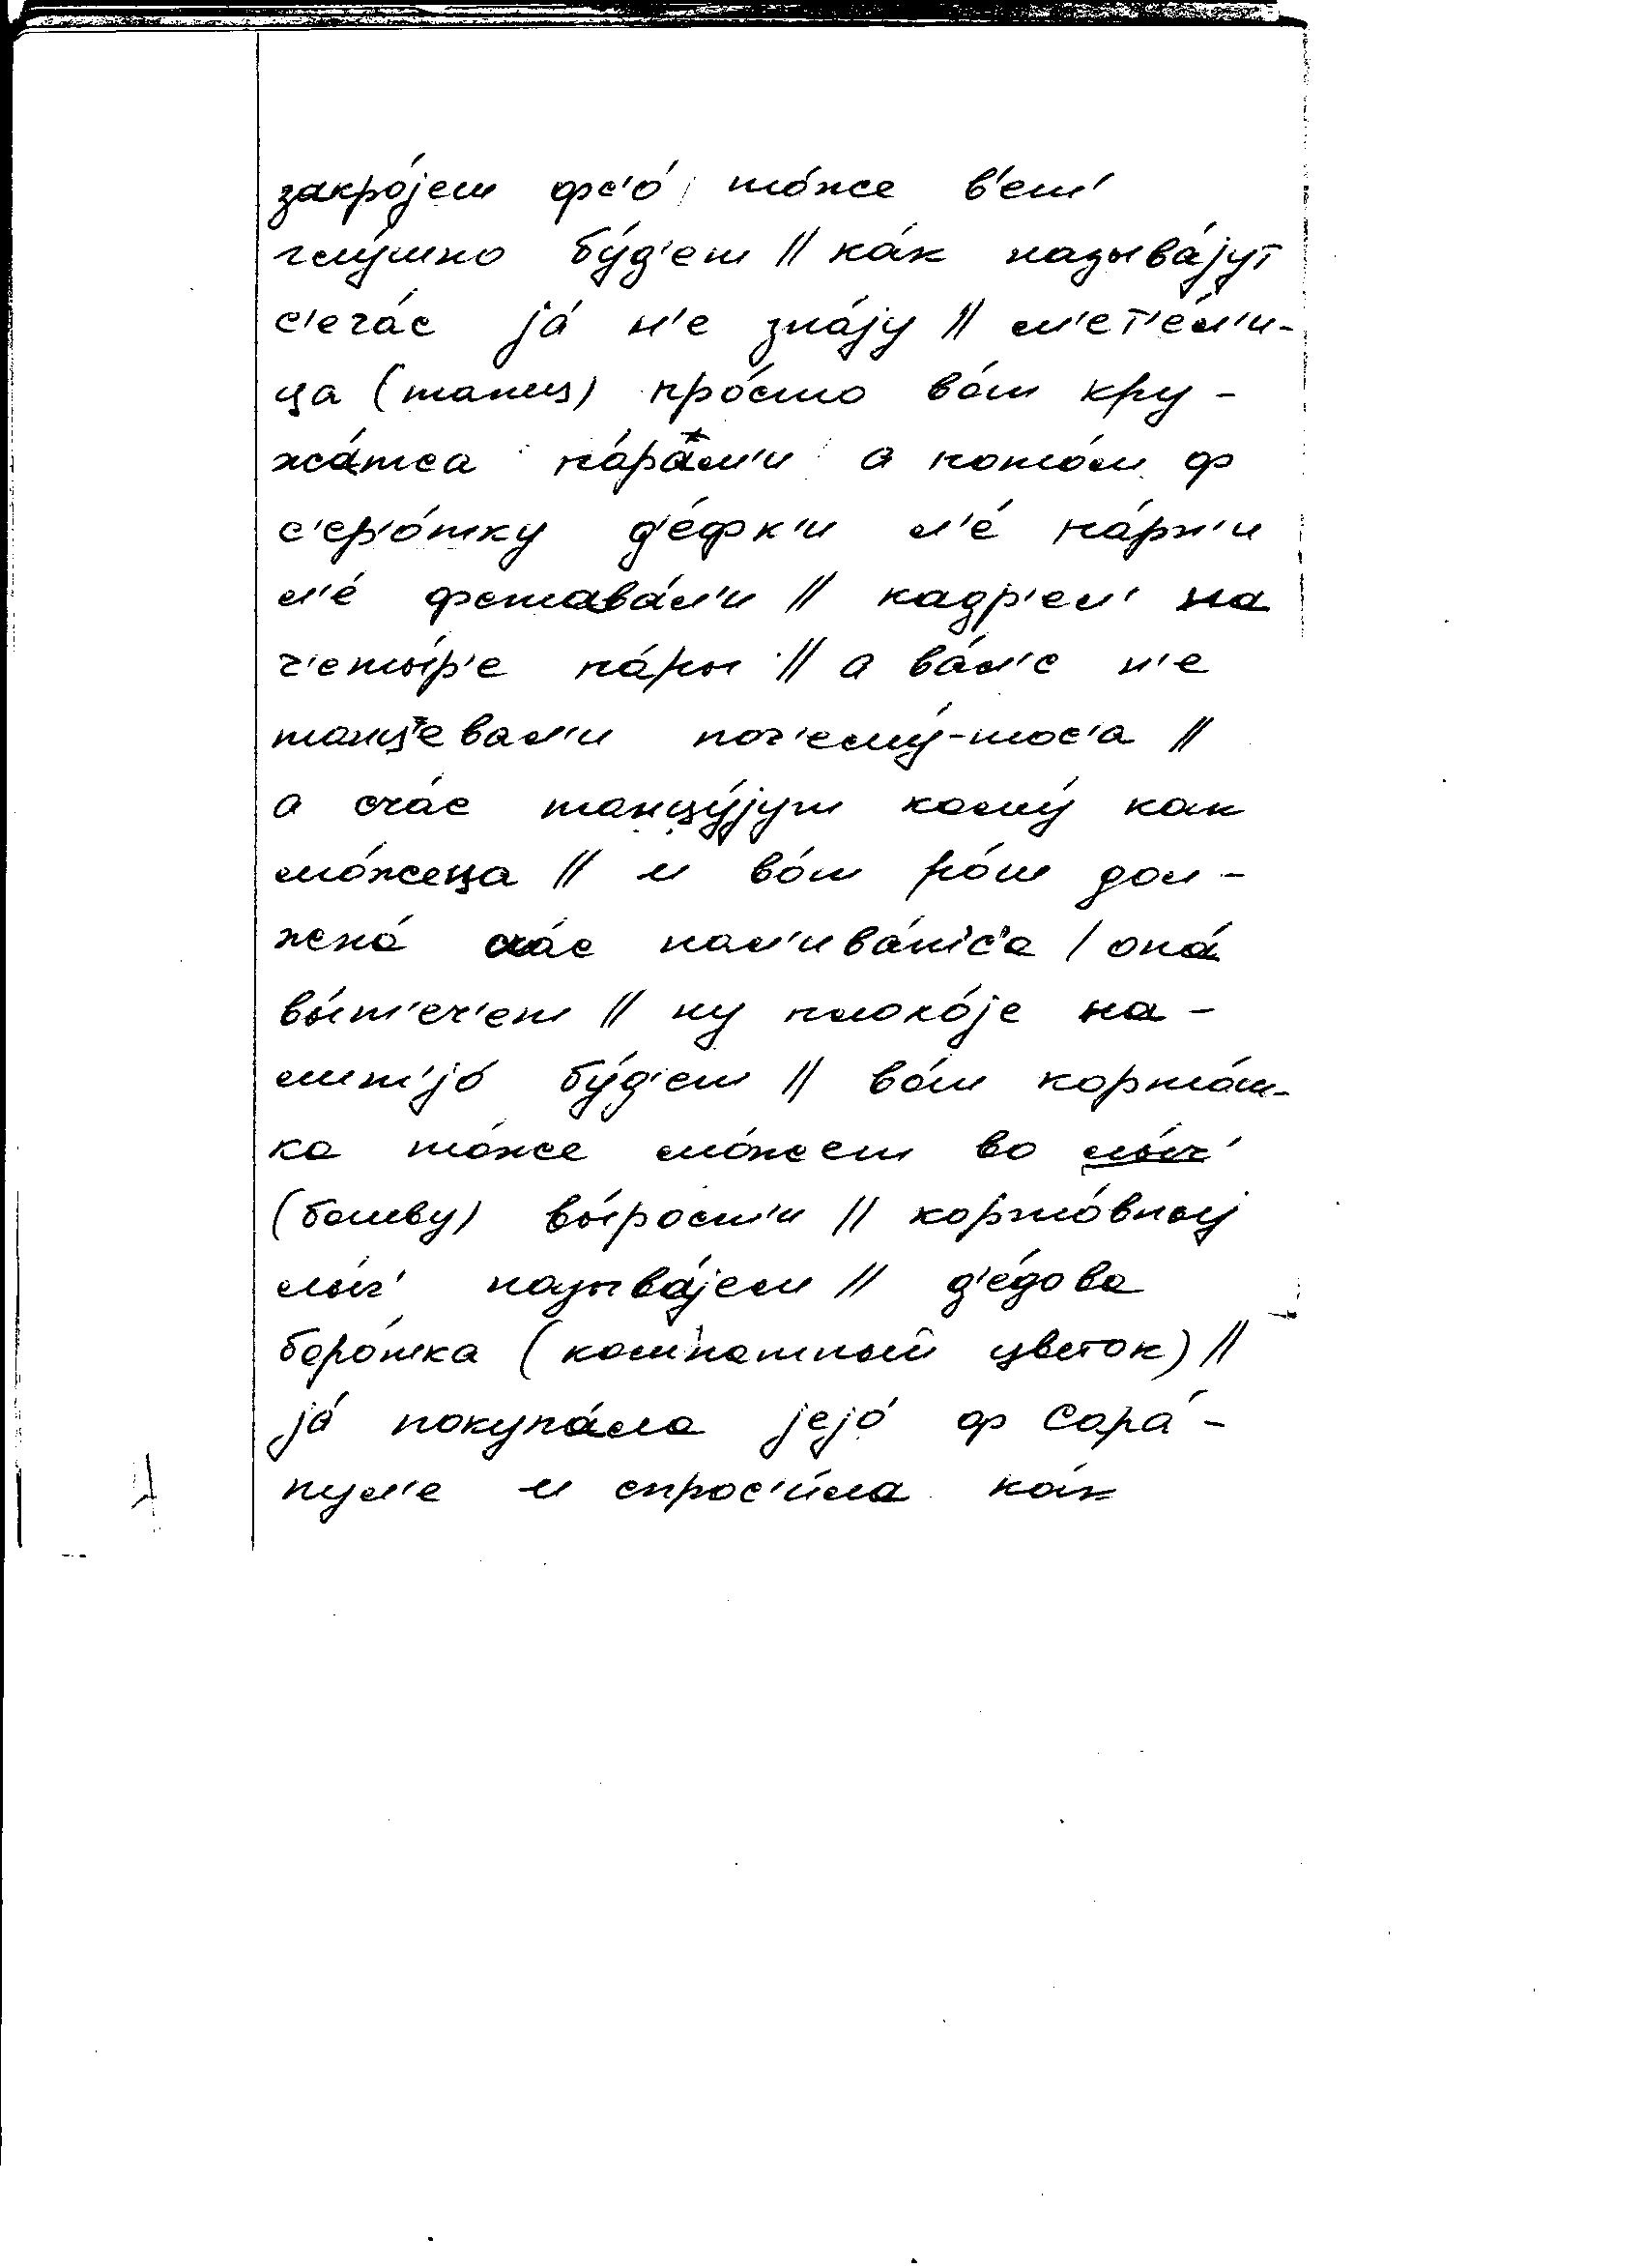 закро́jем фс'о́ / то́же в'ет'
глу́шно бу́д'ет // ка́к называ́jут
с'еча́с jа́ н'е зна́jу // м'ет'е́л'и-
ца (танец) про́сто во́т кру-
жа́тса па́рам'и а пото́м ф
с'ер'о́тку д'е́фк'и л'е́ па́рн'и
л'е́ фстава́л'и // кадр'ел' на
ч'еты́р'е па́ры // а ва́л'с н'е
танцева́л'и поч'ему́-тос'а //
а сча́с танцу́jут кому́ как
мо́жеца // и во́т ро́ш дол-
жна́ сча́с нал'ива́тс'а / она́
вы́т'еч'ет // ну плохо́jе на-
лит'jо́ бу́д'ет // во́т карто́ш-
ка то́же мо́жет во лы́ч'
(ботву) вы́рост'и // карто́вныj
лы́ч' называ́jем // д'е́дова
боро́тка (комнатный цветок) //
jа́ покупа́ла jеjо́ ф Сара́-
пул'е и спрос'и́ла ка́к